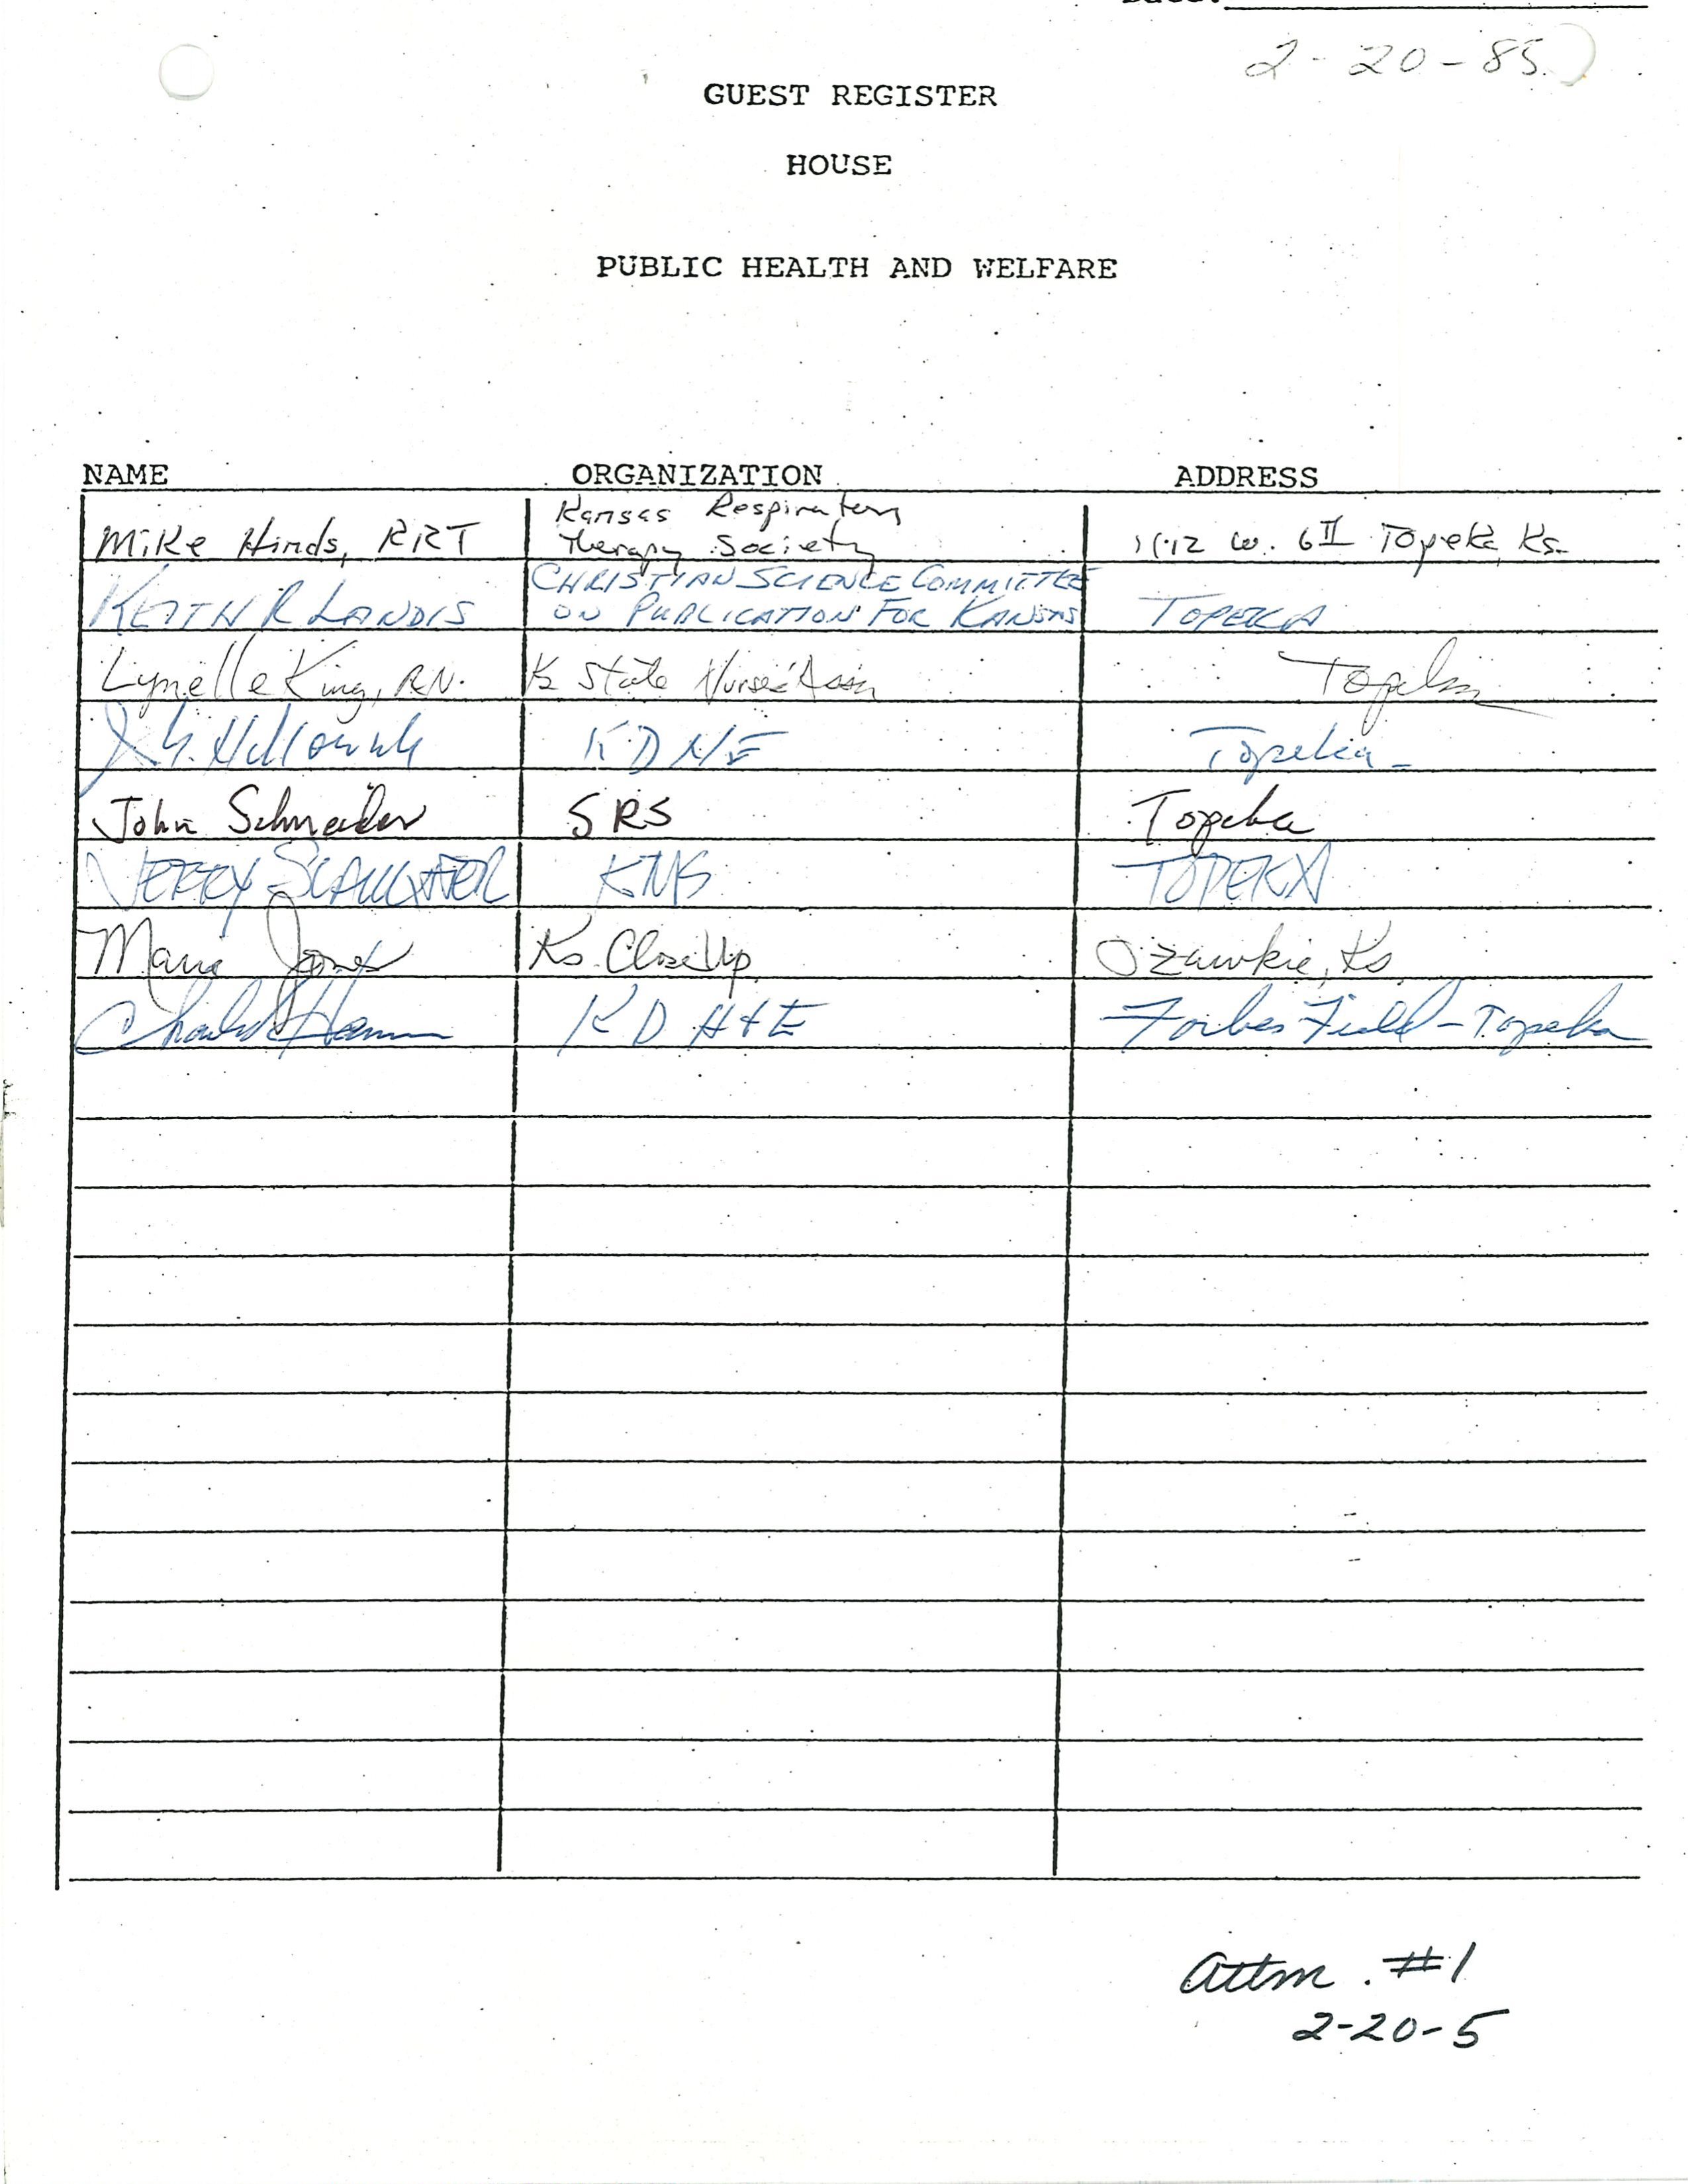 Date:
2-20-85
GUEST REGISTER
HOUSE
PUBLIC HEALTH AND WELFARE
NAME ORGANIZATION ADDRESS
Mike Hinds, RRT Kansas Respiratory Therapy Society W. 6th Topeka Ks.
KEITH R LANDIS CHRISTIAN SCIENCE COMMITTEE ON PUBLICATION FOR KANSAS TOPEKA
Lynelle King, RN. Ks State Nurses' Assn Topeka
Topeka
John Schneider SRS Topeka
JERRY SLAUGHTER KMS TOPEKA
Marie Jones Ks. Close Up Ozawkie, Ks
KDH+E Forbes Field - Topeka
Attm. #1
2-20-5